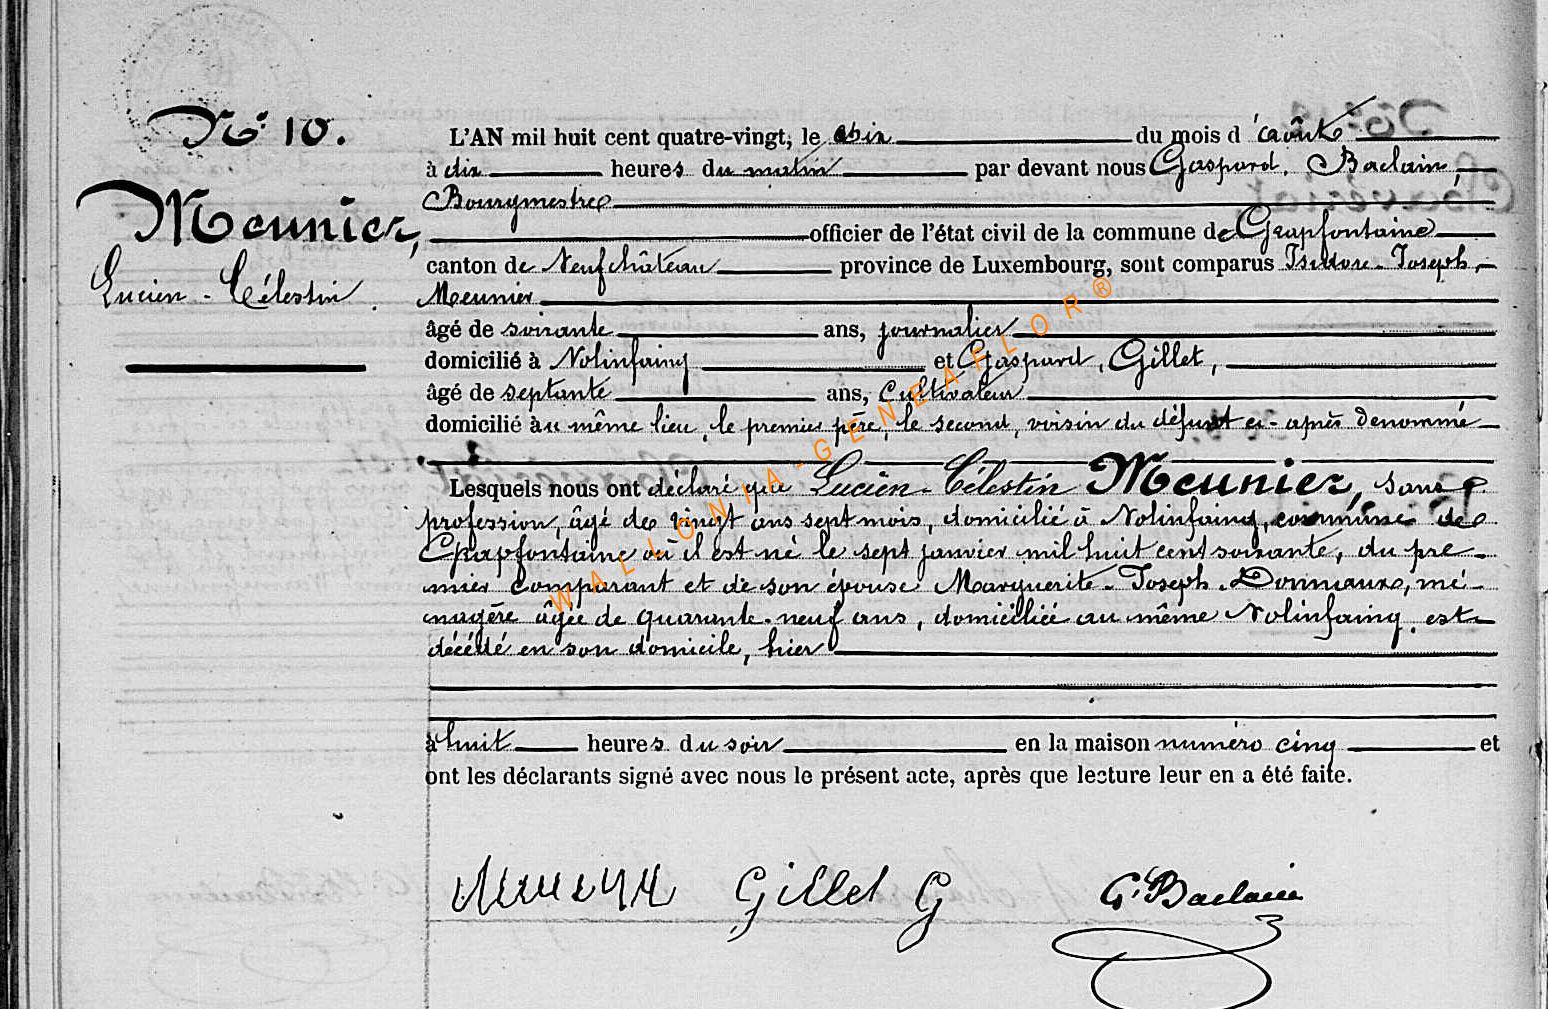 N° 10.
Meunier,
Lucien-Célestin.
L'AN mil huit cent quatre-vingt, le dix du mois d'août
à dix heures du matin par devant nous Gaspard, Baclain,
Bourgmestre
officier de l'état civil de la commune de Grapfontaine
canton de Neufchâteau province de Luxembourg, sont comparus Isidore-Joseph,
Meunier
âgé de soixante ans, journalier
domicilié à Nolinfaing et Gaspard, Gillet,
âgé de septante ans, Cultivateur
domicilié au même lieu, le premier père, le second, voisin du défunt ci-après dénommé
Lesquels nous ont déclaré que Lucien-Célestin Meunier, sans
profession, âgé de vingt ans sept mois, domicilié à Nolinfaing, commune de
Grapfontaine où il est né le sept janvier mil huit cent soixante, du pre-
mier comparant et de son épouse Marguerite-Joseph-Donneaux, mé-
nagère âgée de quarante-neuf ans, domiciliée au même Nolinfaing, est
décédé en son domicile, hier
à huit heures du soir en la maison numéro cinq et
ont les déclarants signé avec nous le présent acte, après que lecture leur en a été faite.
Meunier Gillet G G. Baclain
WALLONIA-GENEAFLOR®